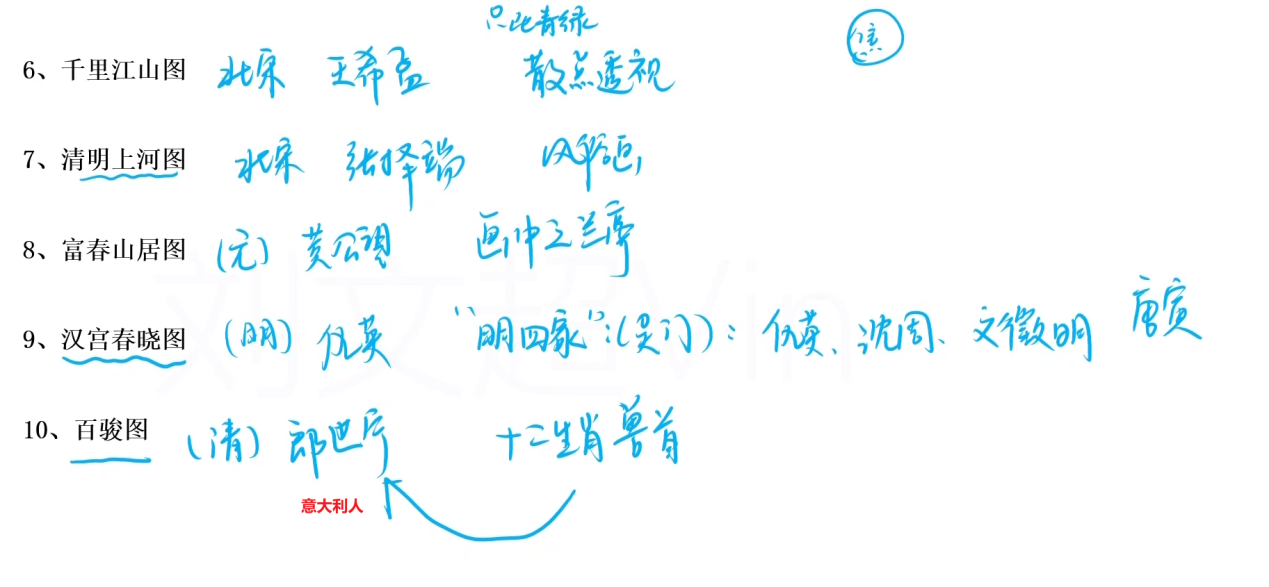 只此青绿
焦
6、千里江山图 北宋 王希孟 散点透视
7、清明上河图 北宋 张择端 风俗画
8、富春山居图 (元) 黄公望 画中之兰亭
9、汉宫春晓图 (明) 仇英 "明四家":(吴门): 仇英、沈周、文徵明 唐寅
10、百骏图 (清) 郎世宁 十二生肖兽首
意大利人
刘文超Vin